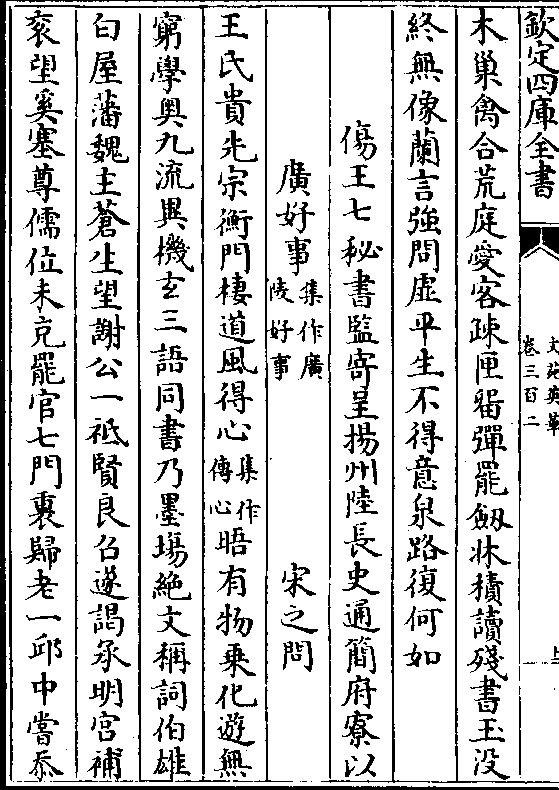 欽定四庫全書
文苑英華
卷三百二
木巢禽合荒庭愛客疎匣留彈罷劔牀積讀殘書玉没
終無像蘭言強問虛平生不得意泉路復何如
傷王七秘書監寄呈揚州陸長史通簡府寮以
廣好事集作廣陵好事
宋之問
王氏貴先宗衡門棲道風得心集作傳心晤有物乘化遊無
窮學奥九流異機玄三語同書乃墨塲絶文稱詞伯雄
白屋藩魏主蒼生望謝公一祗賢良召遂謁承明宫補
衮望奚塞尊儒位未克罷官七門裏歸老一邱中嘗忝